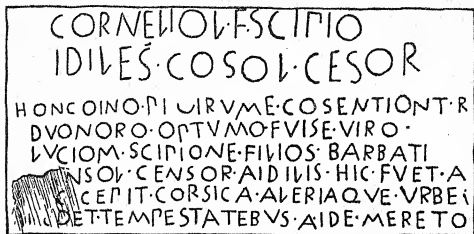 CORNELIO·L·F·SCIPIO
IDILES·COSOL·CESOR
HONCOINO·PLOIRVME·COSENTIONT·R
DVONORO·OPTVMO·FVISE·VIRO·
LVCIOM·SCIPIONE·FILIOS·BARBATI
NSOL·CENSOR·AIDILIS·HIC·FVET·A
CEPIT·CORSICA·ALERIAQVE·VRBE
DET·TEMPESTATEBVS·AIDE·MERETO